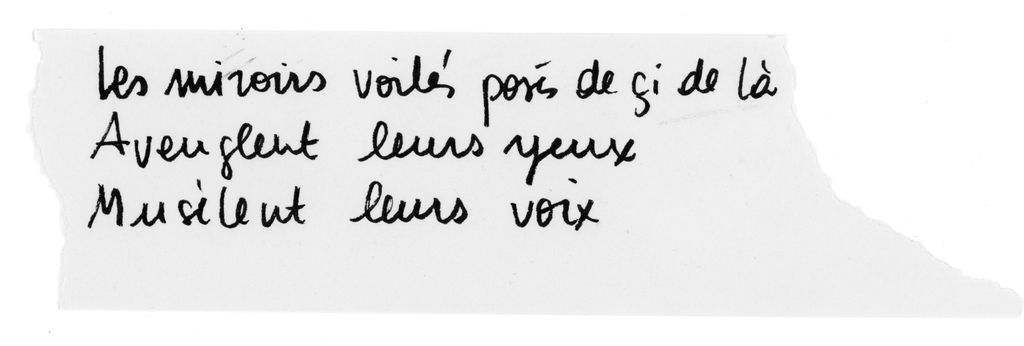 Les miroirs voilés posés de çi de là
Aveuglent leurs yeux
Musèlent leurs voix